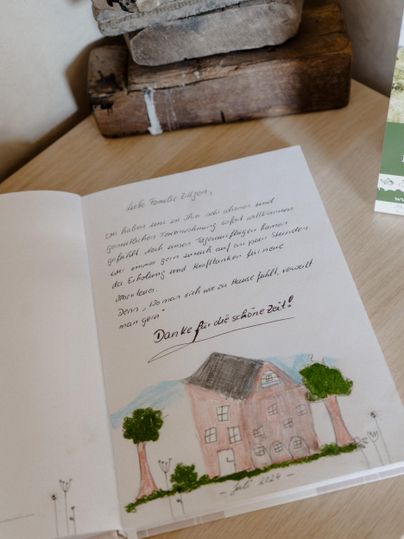 Liebe Familie Zillgen,
wir haben uns in Ihrer sehr schönen und
gemütlichen Ferienwohnung sofort willkommen
gefühlt. Nach unseren Tagesausflügen kamen
wir immer gern zurück auf ein paar Stunden
der Erholung und Krafttanken für neue
Abenteuer.
Denn „Wo man sich wie zu Hause fühlt, verweilt
man gern"
Danke für die schöne Zeit!
- Juli 2024 -